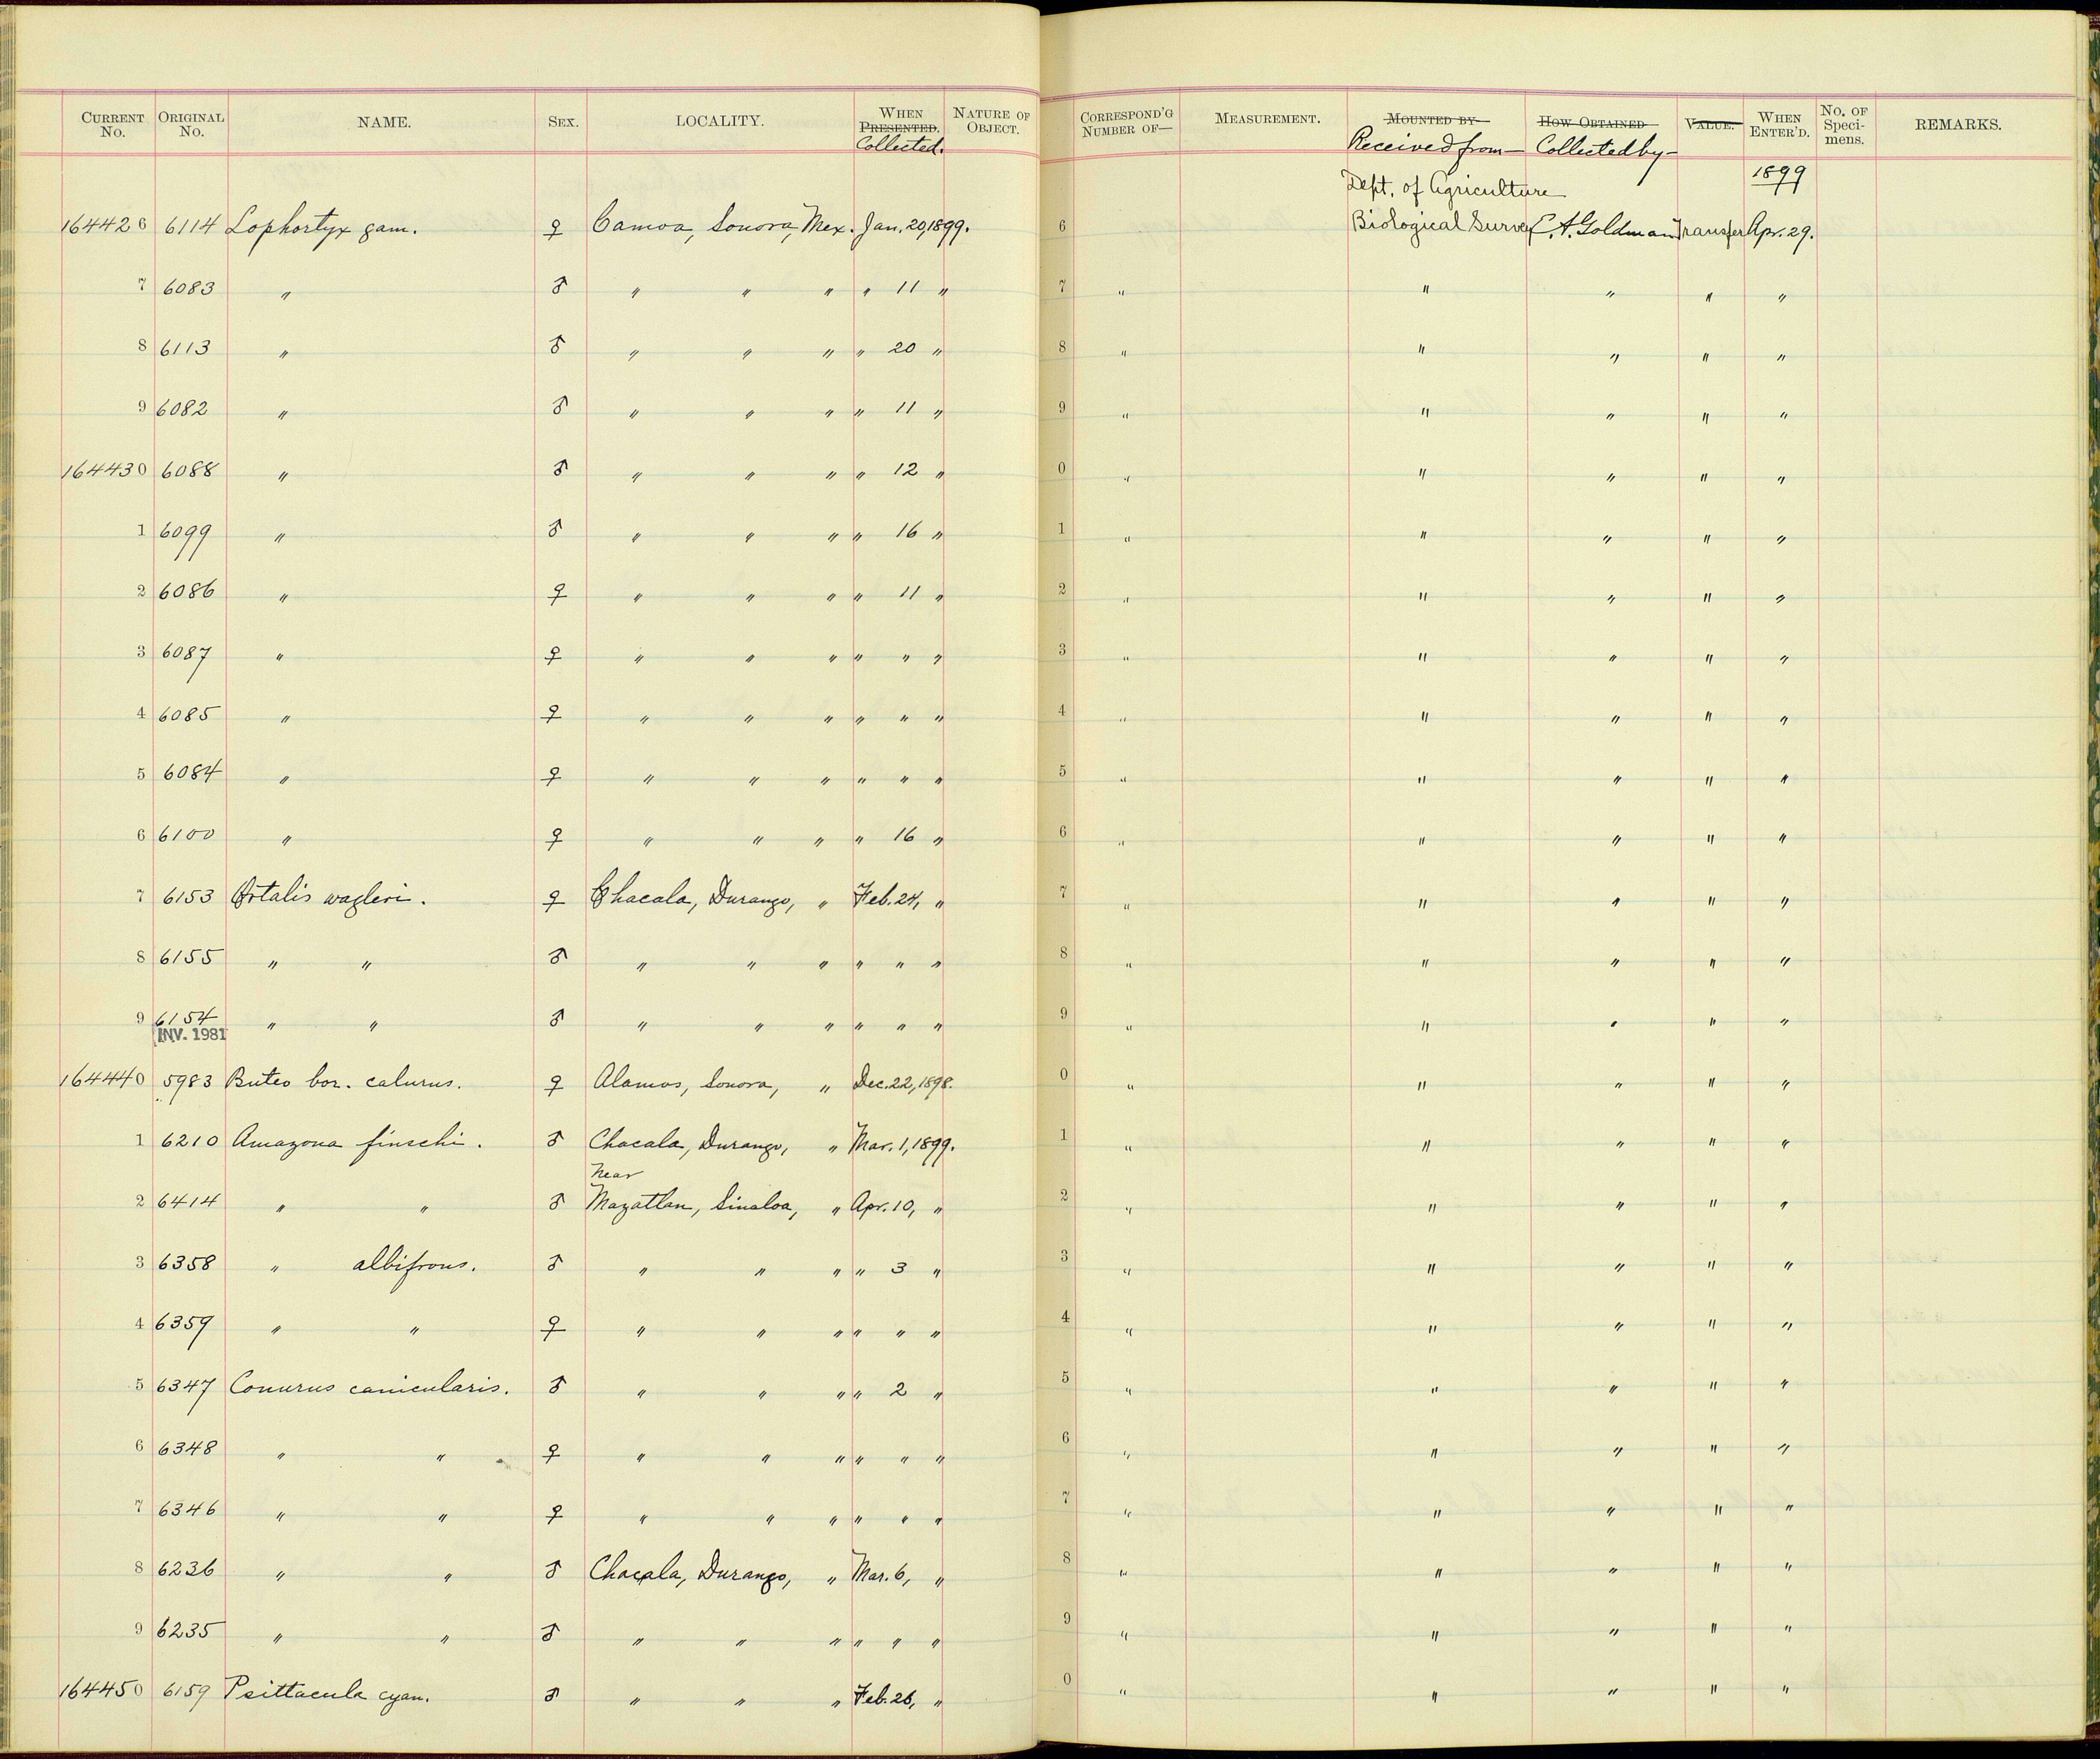 CURRENT No. ORIGINAL No. NAME. SEX. LOCALITY. WHEN PRESENTED. Collected. NATURE OF OBJECT. CORRESPOND'G NUMBER OF— MEASUREMENT. MOUNTED BY- Received from- HOW OBTAINED Collected by- VALUE. WHEN ENTER'D. No. OF Speci-mens. REMARKS.
Dept. of Agriculture 1899
164426 6114 Lophortyx gam. ♀ Camoa, Sonora, Mex. Jan. 20, 1899. 6 Biological Survey E. A. Goldman Transfer Apr. 29.
7 6083 " ♂ " " " " 11 " 7 " " " " "
8 6113 " ♂ " " " " 20 " 8 " " " " "
9 6082 " ♂ " " " " 11 " 9 " " " " "
164430 6088 " ♂ " " " " 12 " 0 " " " " "
1 6099 " ♂ " " " " 16 " 1 " " " " "
2 6086 " ♀ " " " " 11 " 2 " " " " "
3 6087 " ♀ " " " " " " 3 " " " " "
4 6085 " ♀ " " " " " " 4 " " " " "
5 6084 " ♀ " " " " " " 5 " " " " "
6 6100 " ♀ " " " " 16 " 6 " " " " "
7 6153 Ortalis wagleri. ♀ Chacala, Durango, " Feb. 24, " 7 " " " " "
8 6155 " " ♂ " " " " " " 8 " " " " "
9 6154 " " ♂ " " " " " " 9 " " " " "
INV. 1981
164440 5983 Buteo bor. calurus. ♀ Alamos, Sonora, " Dec. 22, 1898. 0 " " " " "
1 6210 Amazona finschi. ♂ Chacala, Durango, " Mar. 1, 1899. 1 " " " " "
Near
2 6414 " " ♂ Mazatlan, Sinaloa, " Apr. 10, " 2 " " " " "
3 6358 " albifrons. ♂ " " " " 3 " 3 " " " " "
4 6359 " " ♀ " " " " " " 4 " " " " "
5 6347 Conurus canicularis. ♂ " " " " 2 " 5 " " " " "
6 6348 " " ♀ " " " " " " 6 " " " " "
7 6346 " " ♀ " " " " " " 7 " " " " "
8 6236 " " ♂ Chacala, Durango, " Mar. 6, " 8 " " " " "
9 6235 " " ♂ " " " " " " 9 " " " " "
164450 6159 Psittacula cyan. ♂ " " " Feb. 26, " 0 " " " " "